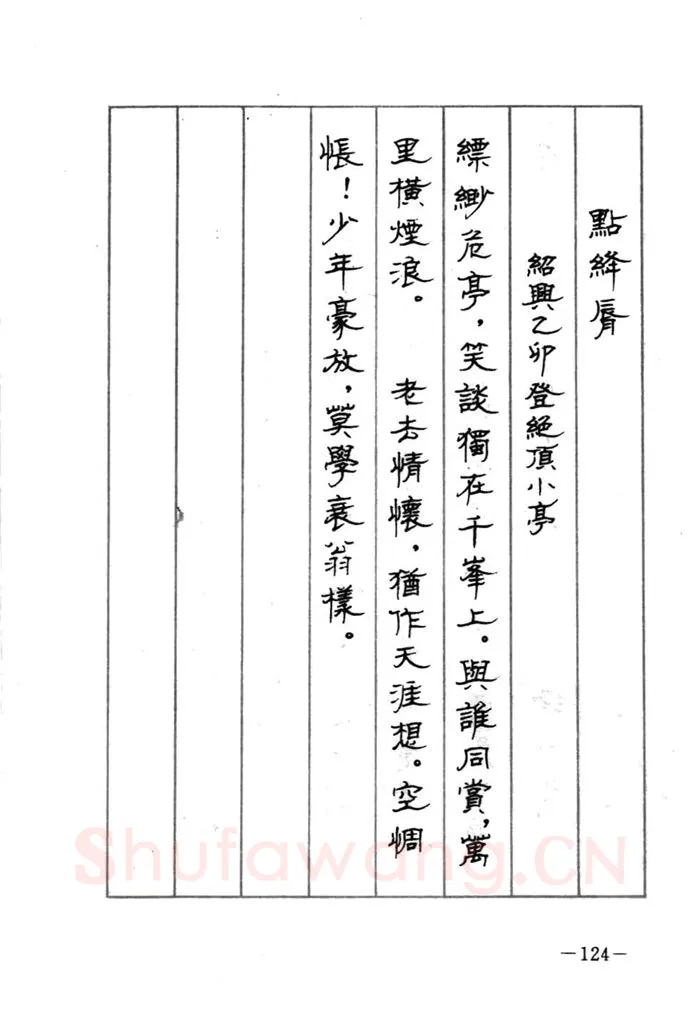 點絳脣
紹興乙卯登絕頂小亭
縹緲危亭，笑談獨在千峯上。與誰同賞，萬
里横煙浪。　老去情懷，猶作天涯想。空惆
悵！少年豪放，莫學衰翁樣。
Shufawang.CN
—124—